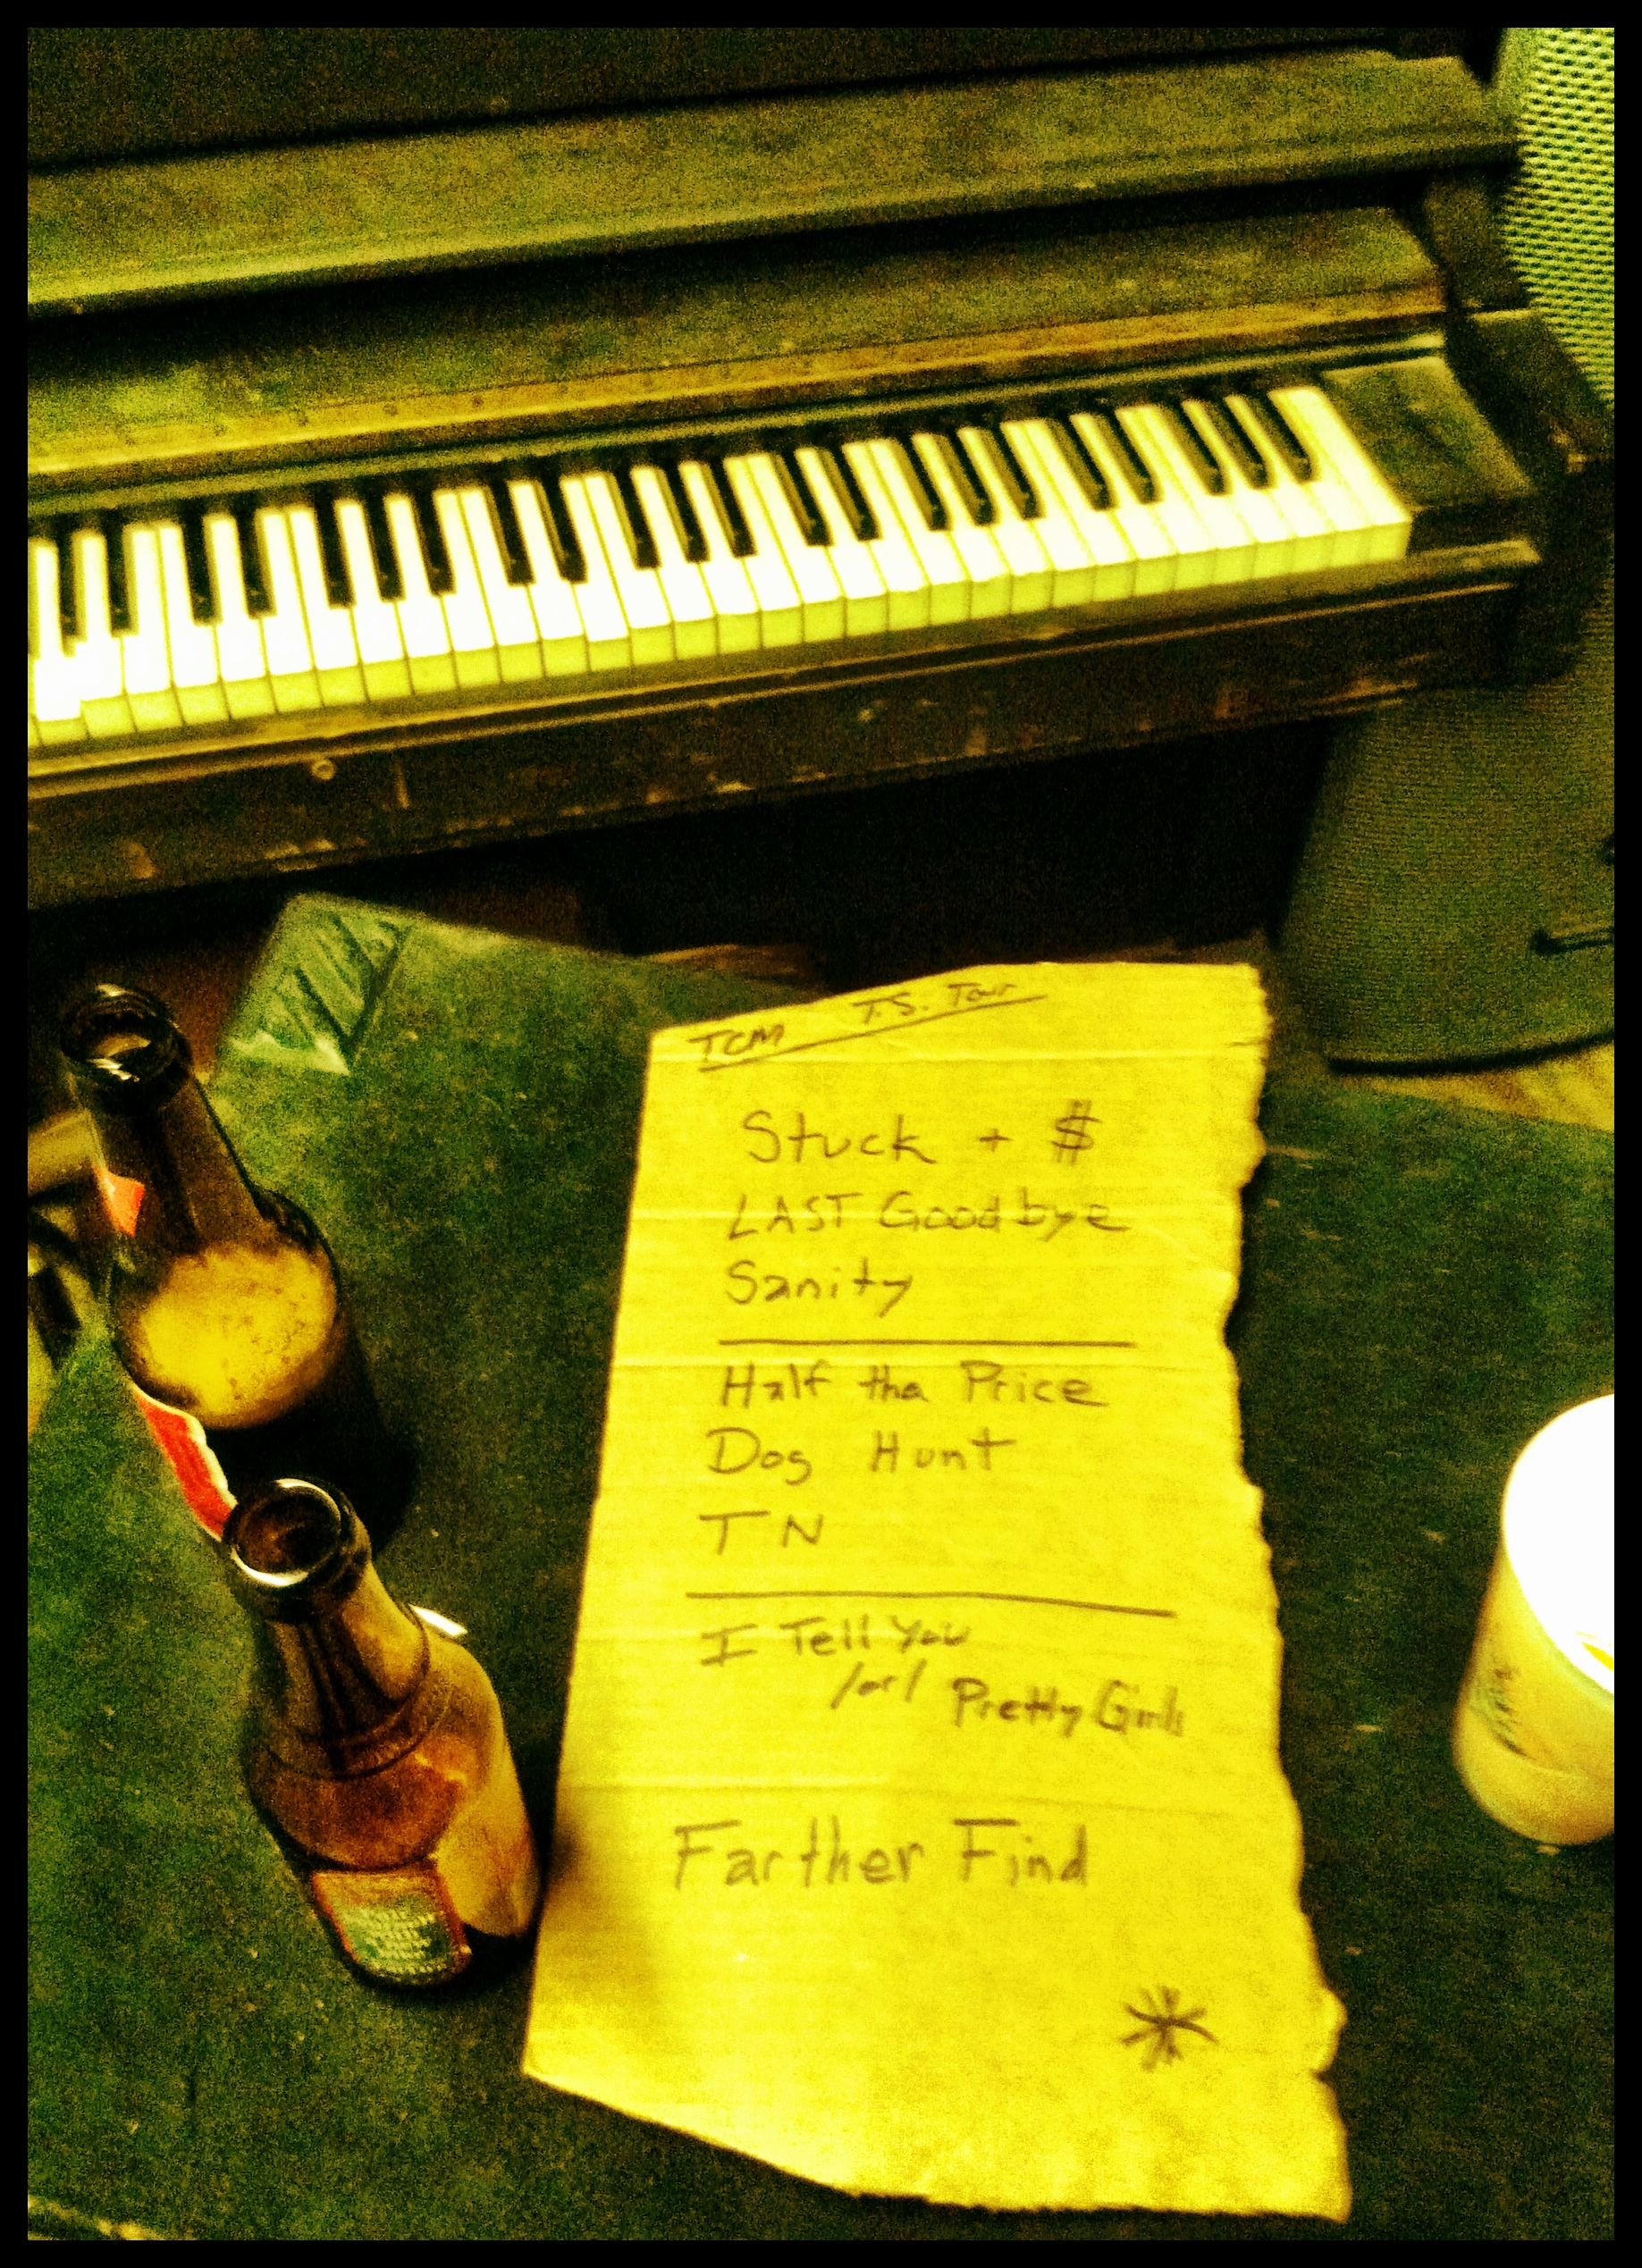 TCM T.S. Tour
Stuck + $
LAST Goodbye
Sanity
Half tha Price
Dog Hunt
TN
I Tell You
/or/ Pretty Girls
Farther Find